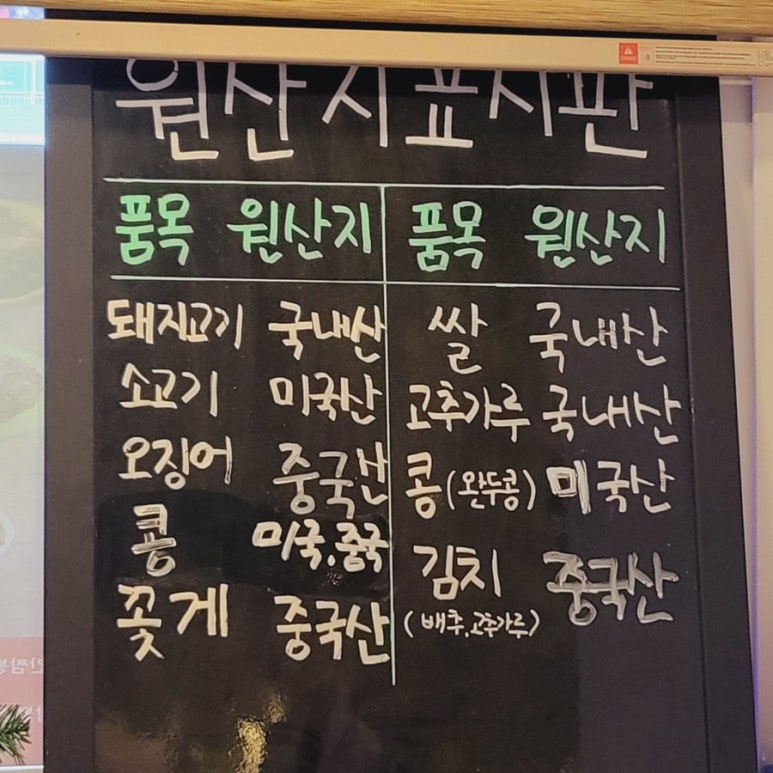 원산지표시판
품목 원산지 품목 원산지
돼지고기 국내산 쌀 국내산
소고기 미국산 고추가루 국내산
오징어 중국산 콩(완두콩) 미국산
콩 미국.중국
김치 중국산
꽃게 중국산 (배추.고추가루)